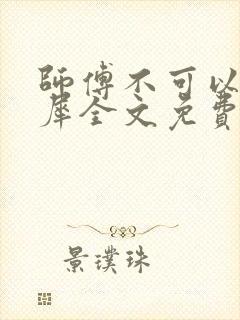 師傅不可以
犀全文免費
景璞珠